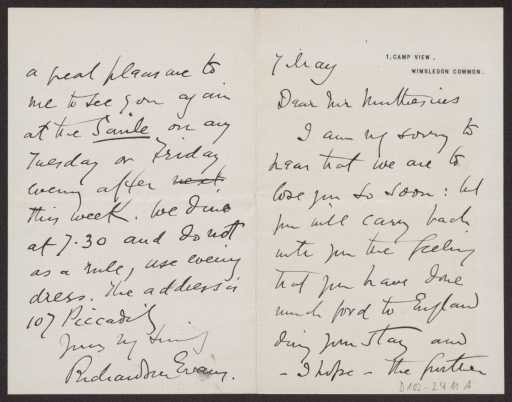 1, CAMP VIEW,
WIMBLEDON COMMON.
7 May
Dear Mr Muthesius
I am vy sorry to
hear that we are to
lose you so soon: but
you will carry back
with you the feeling
that you have done
much good to England
during your stay and
- I hope - the further
a great pleasure to
me to see you again
at the Savile on any
Tuesday or Friday
evening after next
this week. We dine
at 7.30 and do not
as a rule, use evening
dress. The address is
107 Piccadilly
Yours vy truly
Richardson Evans.
D102-2411 A